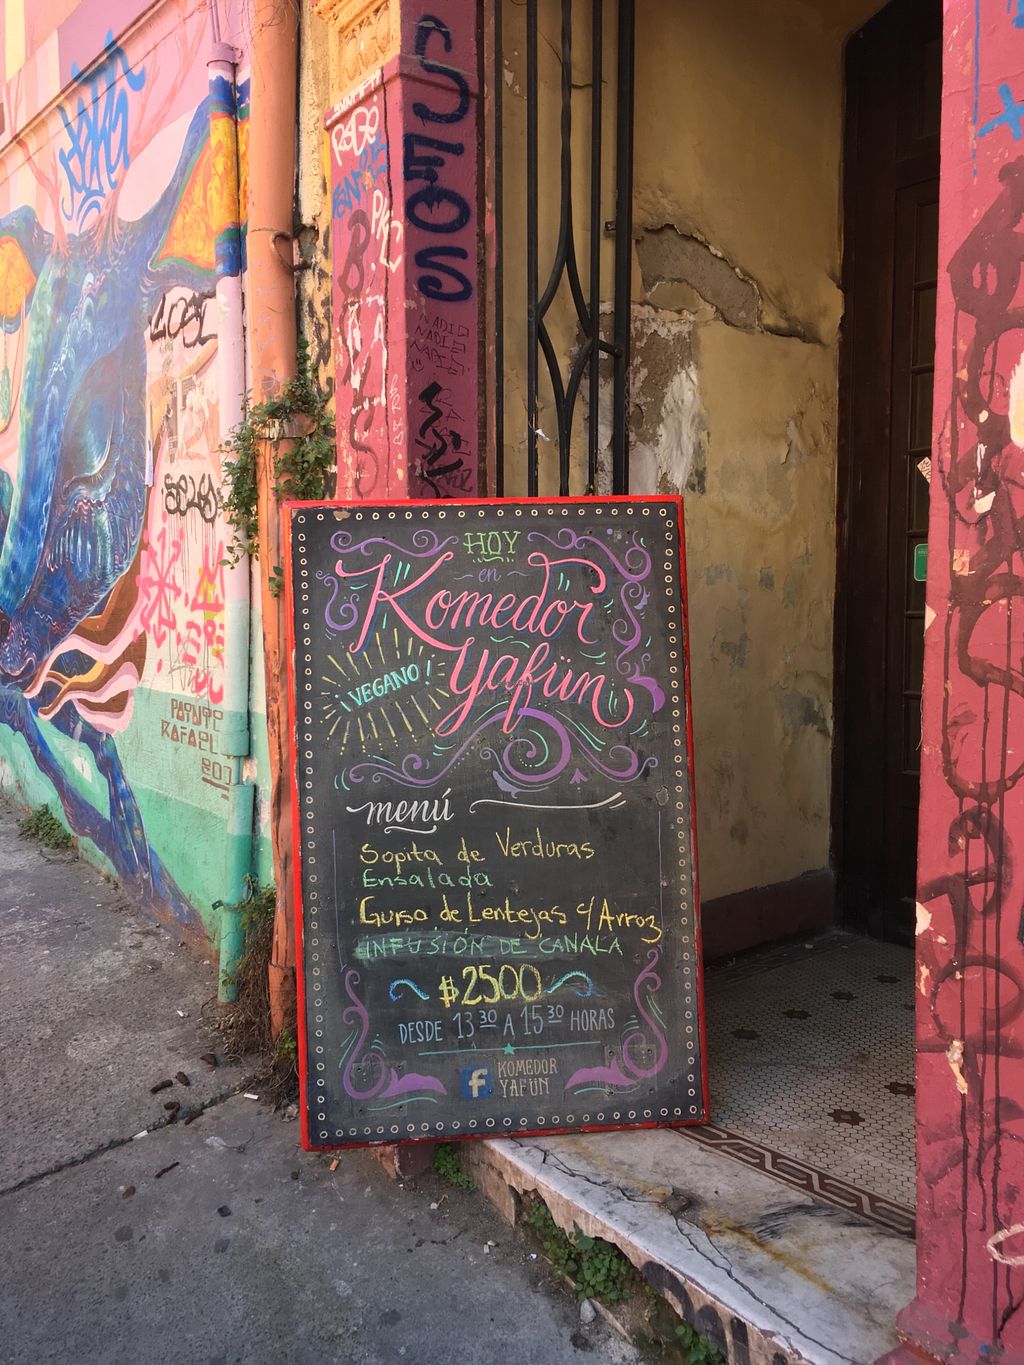 STOS
NADIE
NADIE
HOY
en
Komedor
Yafün
¡VEGANO!
menú
Sopita de Verduras
Ensalada
Guiso de Lentejas c/Arroz
INFUSIÓN DE CANALA
$2500
DESDE 13 30 A 15 30 HORAS
f KOMEDOR
YAFÜN
RAFAEL